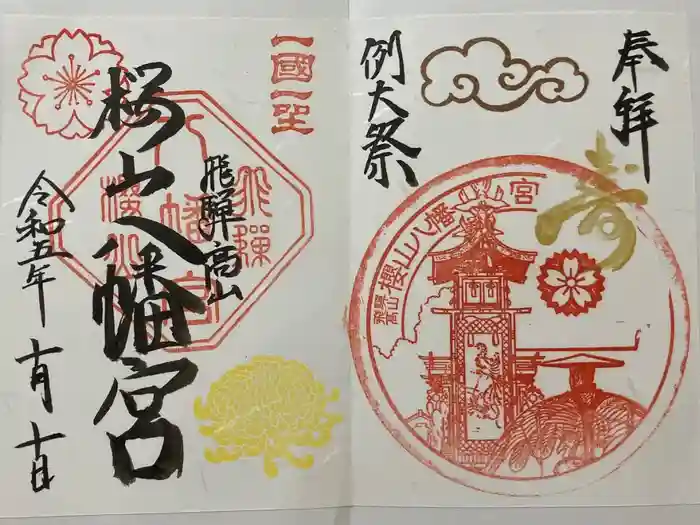 奉拝
寿
例大祭
飛騨高山
櫻山八幡宮
一國一社
飛騨高山
桜山八幡宮
令和五年
十月十日